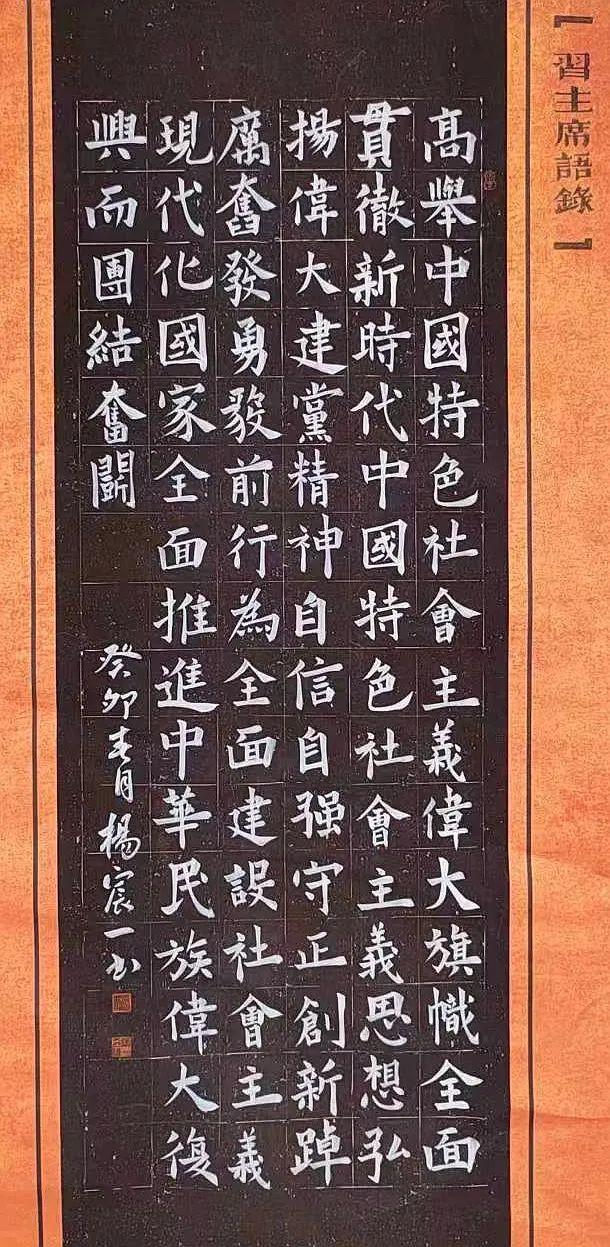 【習主席語錄】
高舉中國特色社會主義偉大旗幟全面
貫徹新時代中國特色社會主義思想弘
揚偉大建黨精神自信自強守正創新踔
厲奮發勇毅前行為全面建設社會主義
現代化國家全面推進中華民族偉大復
興而團結奮鬪
癸卯春月楊宸一书